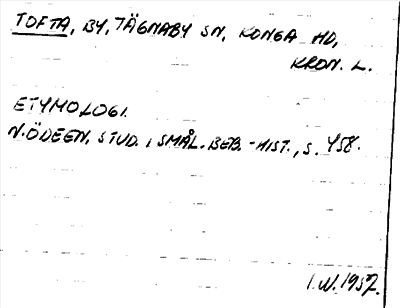 TOFTA, BY, TÄGNABY SN, KONGA HD,
KRON. L.
ETYMOLOGI.
N. ÖDEEN, STUD. I SMÅL. BEB.-HIST., S. 458.
I.W. 1957.